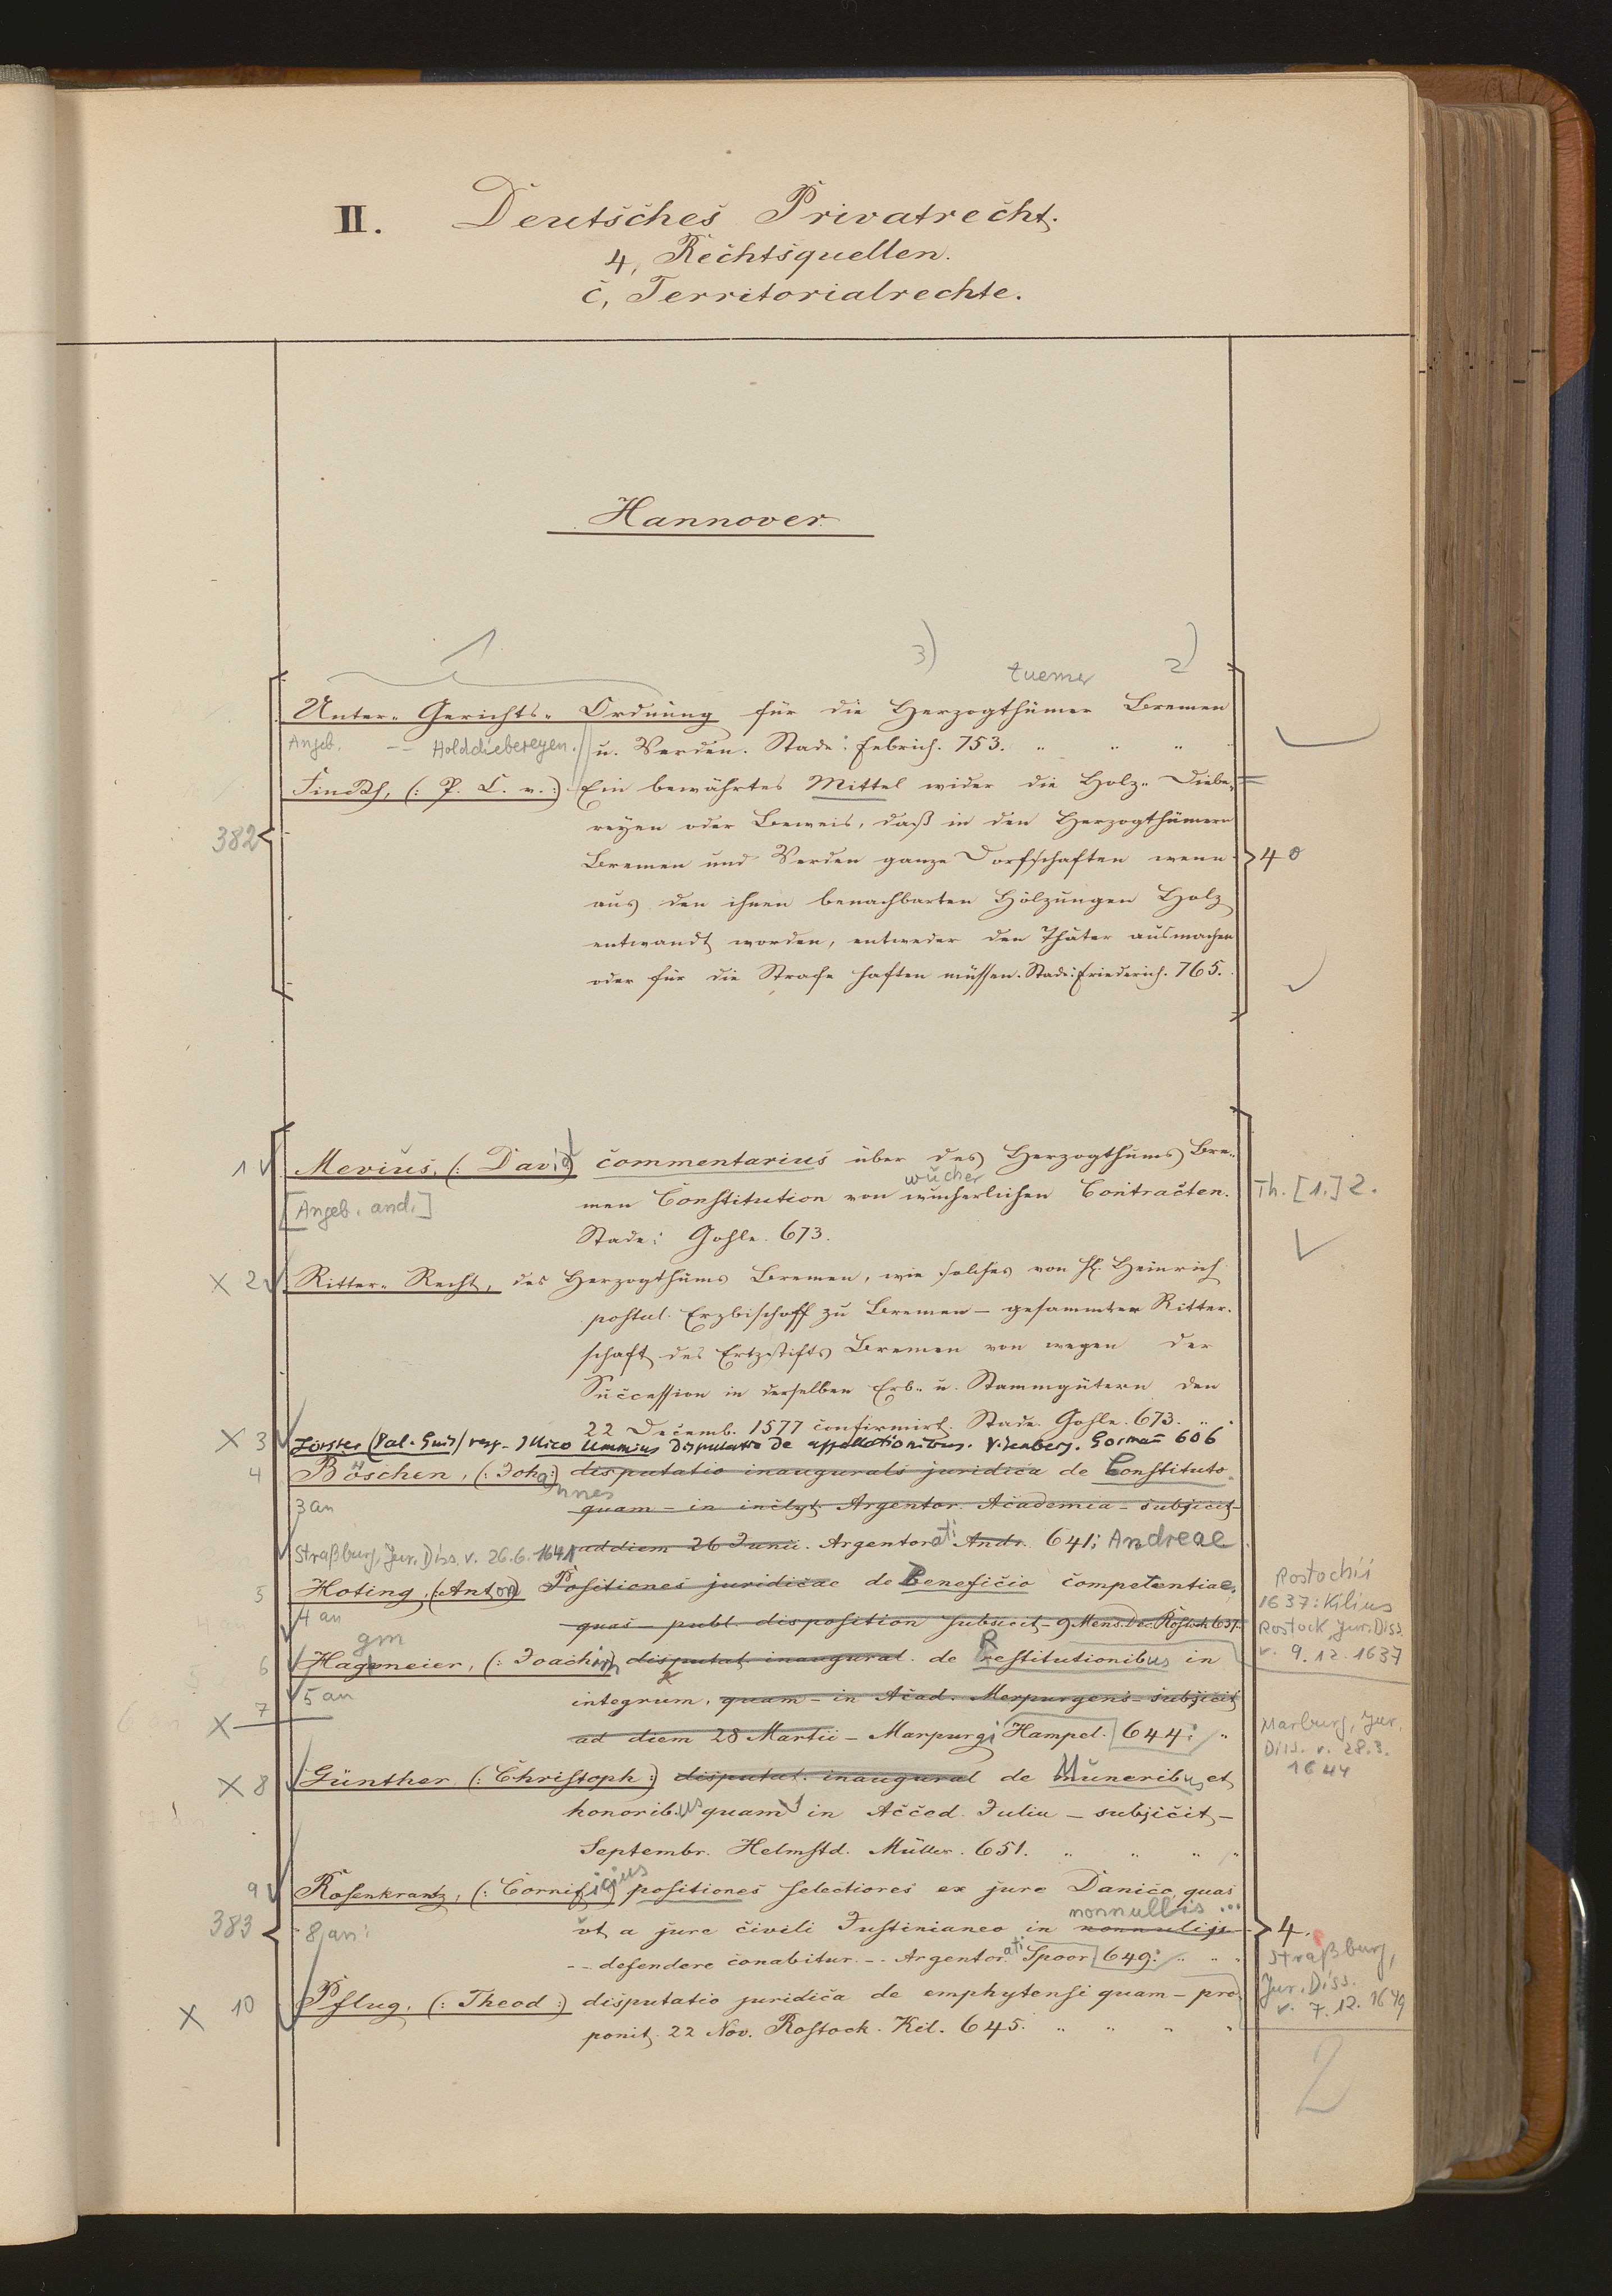 II. Deutsches Privatrecht.
4, Rechtsquellen.
c, Territorialrechte.
Hannover
1 3) 2)
tuemer
Unter- Gerichts- Ordnung für die Herzogthümer Bremen
Angeb. -- Holddiebereyen. u. Verden. Stade: Febrich. 753. " " "
(: P. L. v. :) Ein bewährtes Mittel wider die Holz- Diebe-
reyen oder Beweis, daß in den Herzogthümern
382
Bremen und Verden ganze Dorfschaften wenn 4°
aus den ihnen benachbarten Hölzungen Holz
entwandt worden, entweder den Thäter ausmachen
oder für die Strafe haften müssen. Stade: Friederich. 765.
1 Mevius, (: David commentarius über des Herzogthums Bre-
wucher
[Angeb. and.] men Constitution von wucherlichen Contracten. Th. [1.] 2.
Stade: Gohle. 673.
X 2 Ritter- Recht, des Herzogthums Bremen, wie solches von H. Heinrich
postul. Erzbischoff zu Bremen – gesammter Ritter-
schaft des Ertzstifts Bremen von wegen der
Succession in derselben Erb- u. Stammgütern den
22 Decemb. 1577 confirmirt. Stade. Gohle. 673. "
X 3 Förster (Val. Guil) resp. Illico Ummius Disputatio de appellationibus. Vitenberg. Gorman 606
4 Böschen, (: Johannes disputatio inaugurals juridica de Constituto
3 an quam – in inclyt. Argentor. Academia – subjicit –
Straßburg, Jur. Diss. v. 26.6.1641 ad diem 26 Junii. Argentorati Andr. 641; Andreae
5 Hoting, (: Anton) Positiones juridicae de Beneficio competentiae, Rostochii
1637: Kilius
4 an quas – publ. disposition subjicit – 9 Mens. Dec. Rostoch 637. Rostock, Jur. Diss.
v. 9.12.1637
gm
6 Hagemeier, (: Joachim) disputat. inaugural. de Restitutionibus in
5 an integrum, quam – in Acad. Marpurgens – subjicit
X 7 ad diem 28 Martii – Marpurgi Hampel. 644: " Marburg, Jur.
Diss. v. 28.3.
1644
X 8 Günther (: Christoph :) disputat. inaugural de Muneribus et
honorib.us quam in Acced. Julia – subjicit –
Septembr. Helmstd. Müller. 651. " " " "
9 Rosenkrantz, (: Cornificius positiones selectiores ex jure Danico, quas
nonnullis ...
383 8 an: vt a jure civili Justinianeo in nonnulis 4.
-- defendere conabitur. -- Argentorati Spoor 649: " " Straßburg,
Jur. Diss.
v. 7.12.1649
X 10 Pflug, (: Theod :) disputatio juridica de emphytensi quam – pro-
ponit. 22 Nov. Rostock. Kil. 645. " " " "
2